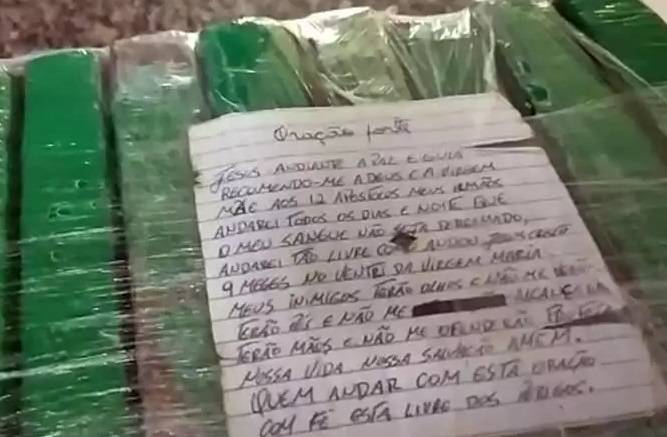 Oração forte
JESUS ADIANTE A PAZ E GUIA
RECOMENDO-ME A DEUS E A VIRGEM
MÃE AOS 12 APÓSTOLOS MEUS IRMÃOS
ANDAREI TODOS OS DIAS E NOITE QUE
O MEU SANGUE NÃO SEJA DERRAMADO,
ANDAREI TÃO LIVRE ANDOU JESUS CRISTO
9 MESES NO VENTRE DA VIRGEM MARIA.
MEUS INIMIGOS TERÃO OLHOS E NÃO ME VERÃO
TERÃO PÉS E NÃO ME
TERÃO MÃOS E NÃO ME OFENDERÃO
NOSSA VIDA NOSSA SALVAÇÃO AMÉM.
QUEM ANDAR COM ESTA ORAÇÃO
COM FÉ ESTA LIVRE DOS PERIGOS.